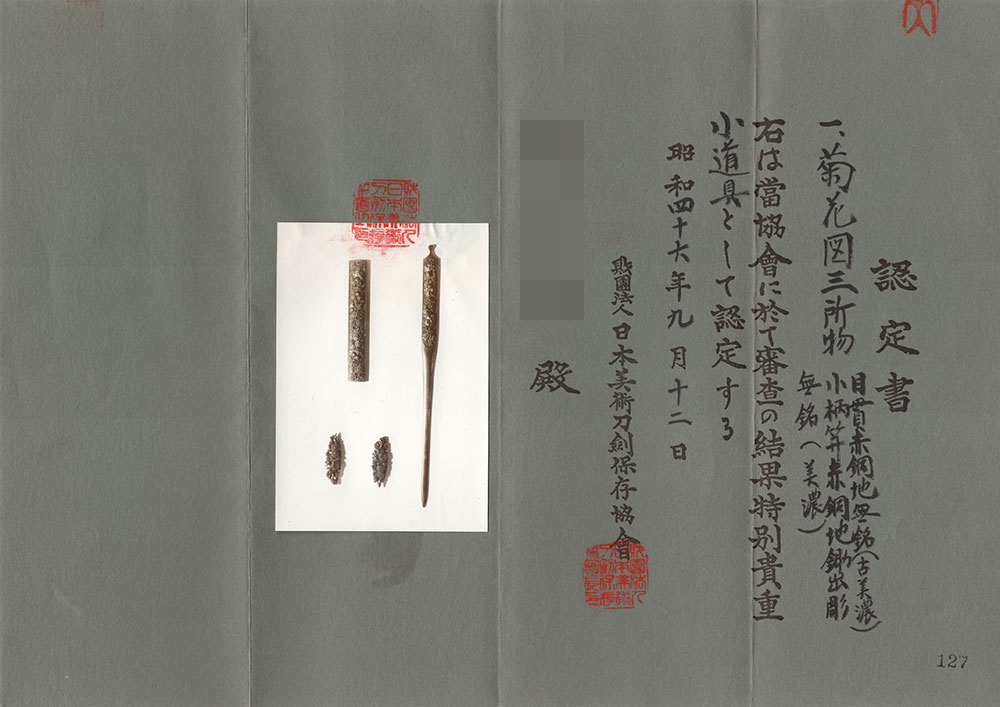 認定書
一、菊花図三所物
目貫赤銅地無銘(古美濃)
小柄笄赤銅地鋤出彫
無銘(美濃)
右は當協會に於て審査の結果特別貴重
小道具として認定する
昭和四十六年九月十二日
財團法人日本美術刀劍保存協會
殿
127